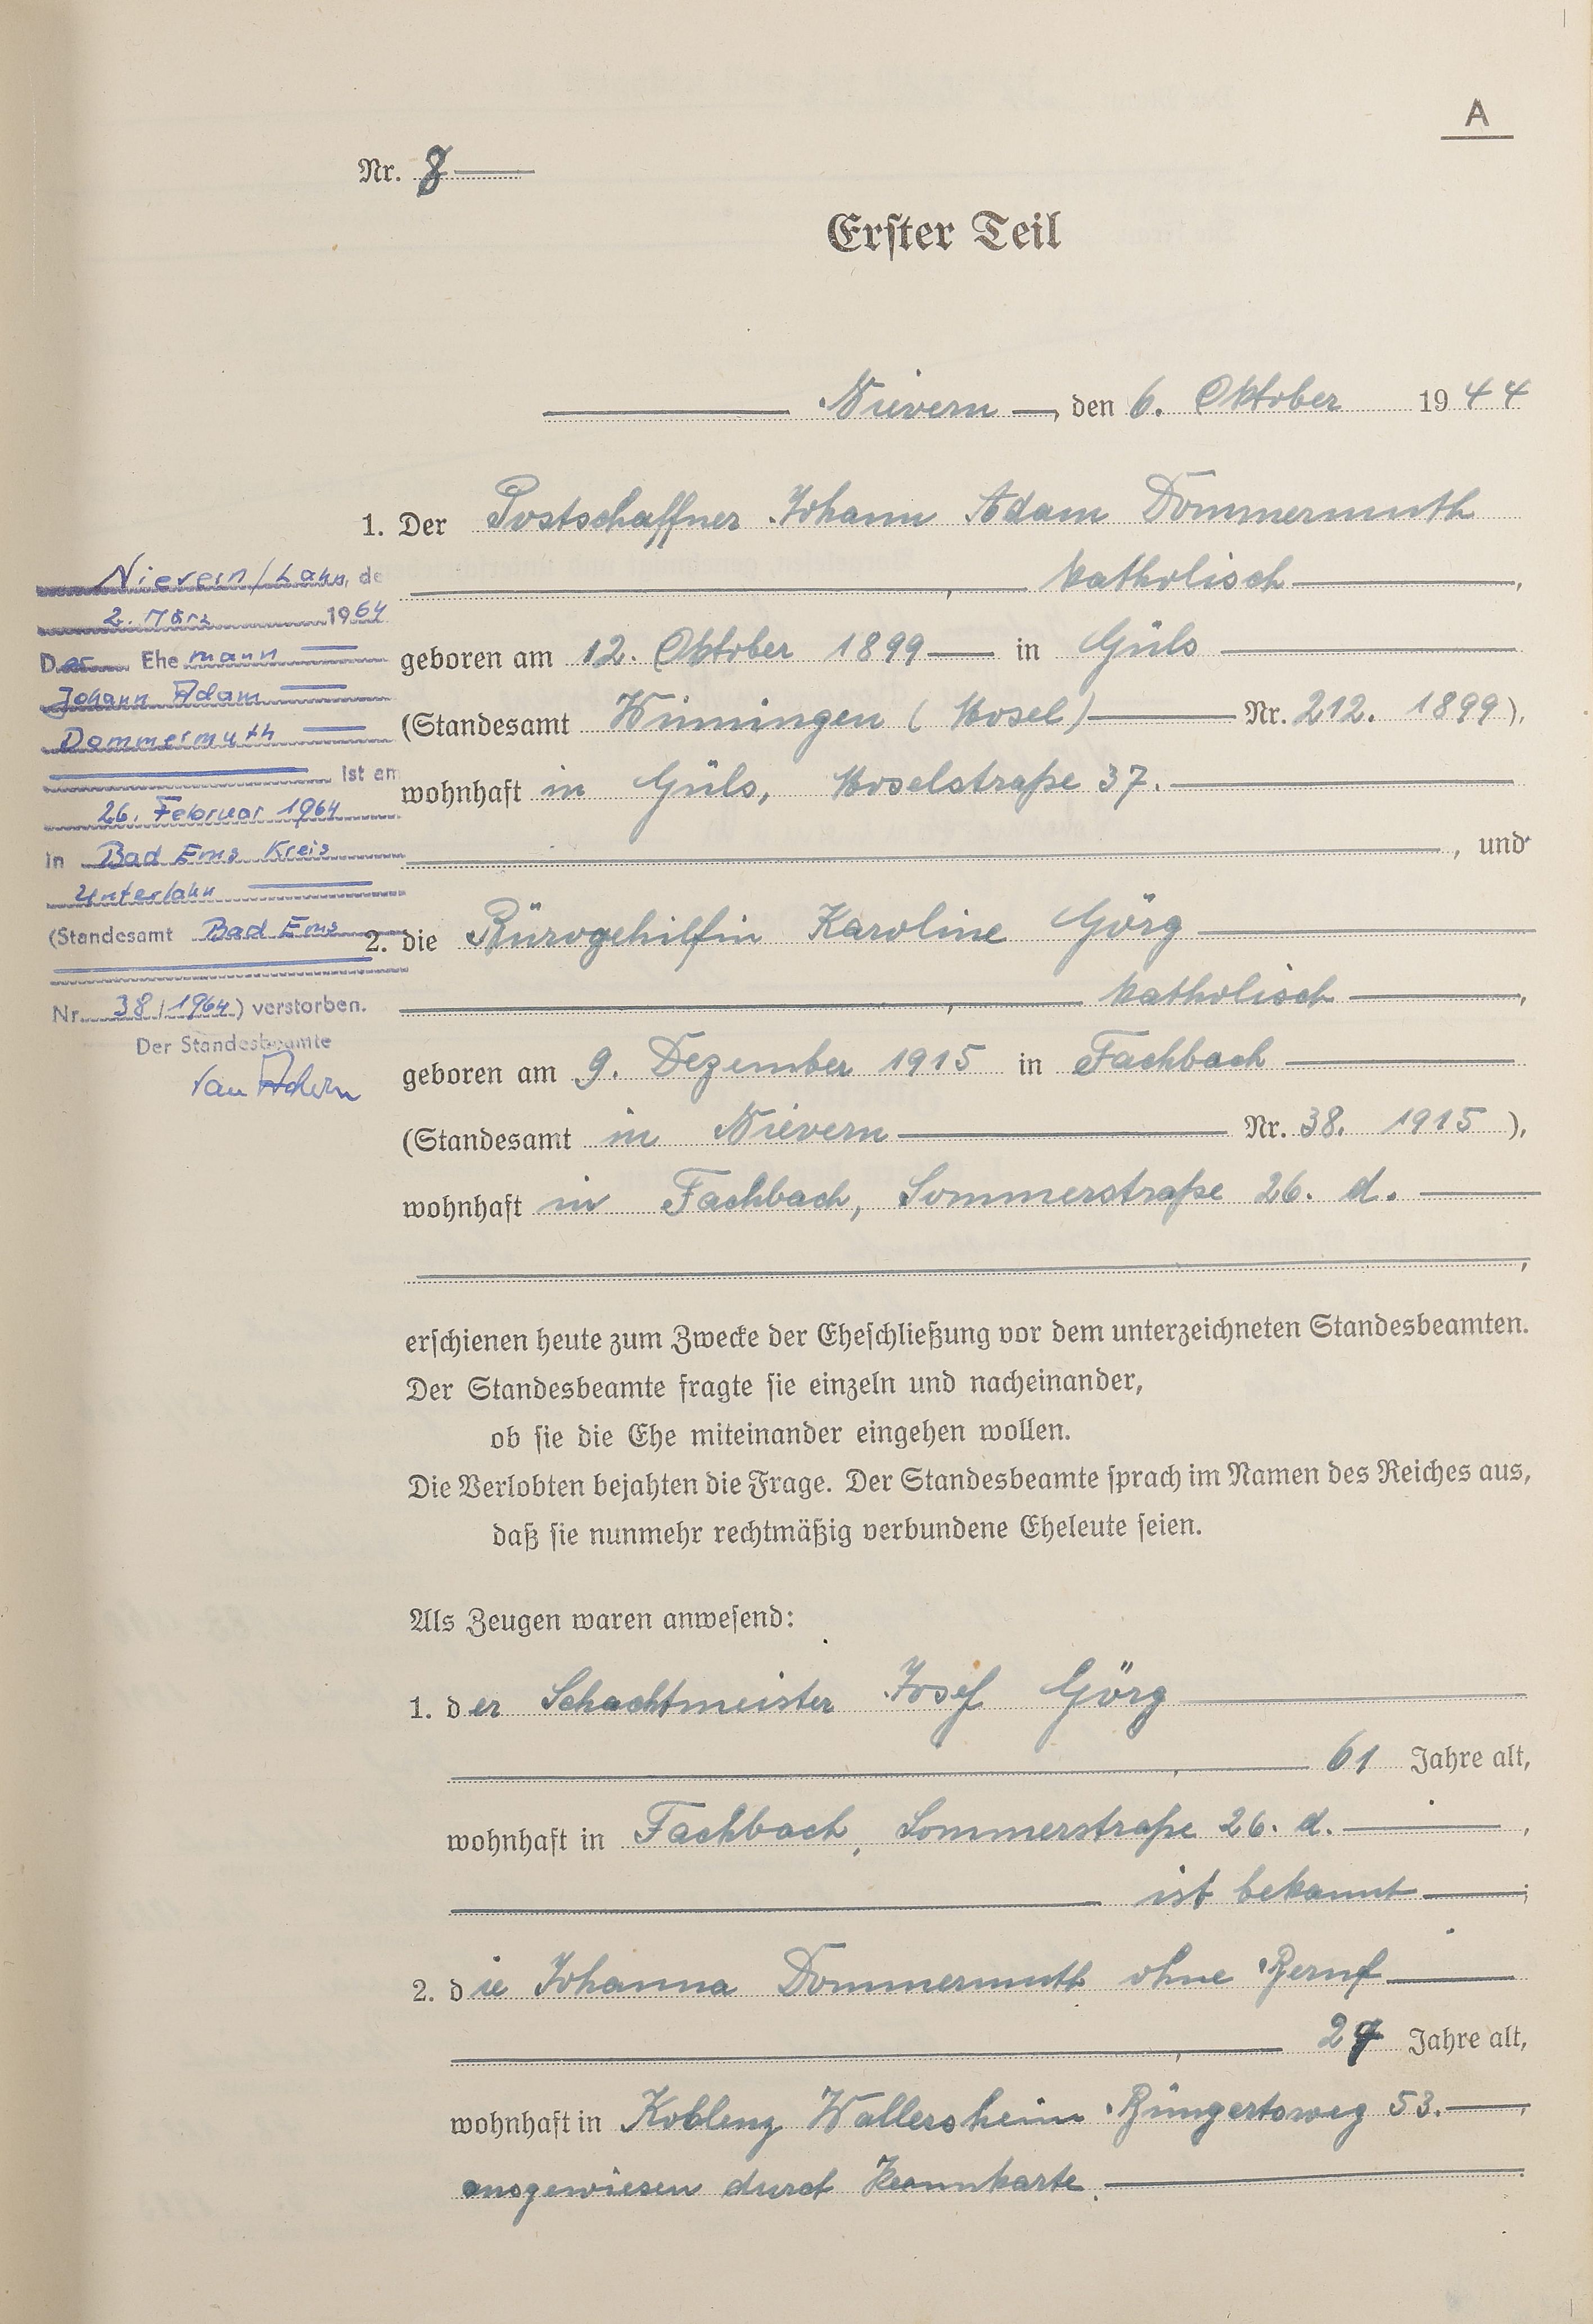 A
Nr. 8
Erster Teil
Nievern, den 6. Oktober 1944
1. Der Postschaffner Johann Adam Dommermuth
, katholisch,
geboren am 12. Oktober 1899 in Güls
(Standesamt Winningen (Mosel) Nr. 212. 1899),
wohnhaft in Güls, Moselstraße 37.
, und
2. die Bürogehilfin Karoline Görg
, katholisch,
geboren am 9. Dezember 1915 in Fachbach
(Standesamt in Nievern Nr. 38. 1915),
wohnhaft in Fachbach, Sommerstraße 26. d.
,
erschienen heute zum Zwecke der Eheschließung vor dem unterzeichneten Standesbeamten.
Der Standesbeamte fragte sie einzeln und nacheinander,
ob sie die Ehe miteinander eingehen wollen.
Die Verlobten bejahten die Frage. Der Standesbeamte sprach im Namen des Reiches aus,
daß sie nunmehr rechtmäßig verbundene Eheleute seien.
Als Zeugen waren anwesend:
1. der Schachtmeister Josef Görg
, 61 Jahre alt,
wohnhaft in Fachbach, Sommerstraße 26. d.,
ist bekannt;
2. die Johanna Dommermuth ohne Beruf
, Jahre alt,
wohnhaft in Koblenz Wallersheim Büngertsweg 53.,
ausgewiesen durch Kennkarte.
Nievern/Lahn, de
2. März 1964
Der Ehemann
Johann Adam
Dommermuth
ist am
26. Februar 1964
in Bad Ems Kreis
Unterlahn
(Standesamt Bad Ems
Nr. 38/1964) verstorben.
Der Standesbeamte